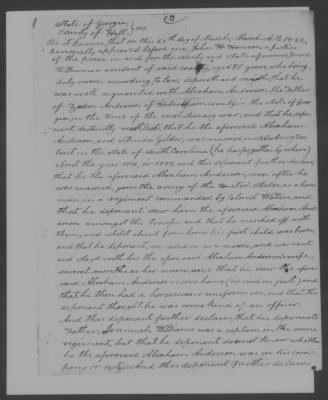 State of Georgia,
County of Hall.
Be it known, that on this 27th day of March, A.D. 1822,
personally appeared before me, John H. a justice
of the peace in and for the county and state aforesaid,
Williams a resident of said county, aged 87 years, who being
duly sworn according to law, deposeth and saith that he
was well acquainted with Abraham Anderson, the Father
of Anderson of Habersham county in the state of Geor-
gia, in the time of the revolutionary war, and that he depon-
ent distinctly that he the aforesaid Abraham
Anderson, and were married in
in the state of South Carolina (he has forgotten by whom)
about the year and this deponent further declares
that he the aforesaid Abraham Anderson, soon after he
was married, join the army of the United States as a horse-
man, in a regiment commanded by Colonel
that he deponent saw him the aforesaid Abraham And-
erson amongst the troops and that he marched off with
them, and whilst absent from home his first child was born,
and that he deponent, and was sent
and stayed with the aforesaid Abraham Anderson's wife,
several months as her nurse, and that he saw the afore-
said Abraham Anderson come home and
that he then had a horseman's uniform on, and that
deponent thought he was some kind of an officer.
And this deponent further declares, that he deponent's
Father, Jeremiah Williams was a captain in the same
regiment, but that he deponent does not know whether
he the aforesaid Abraham Anderson was in his com-
pany or not. And this deponent further declares